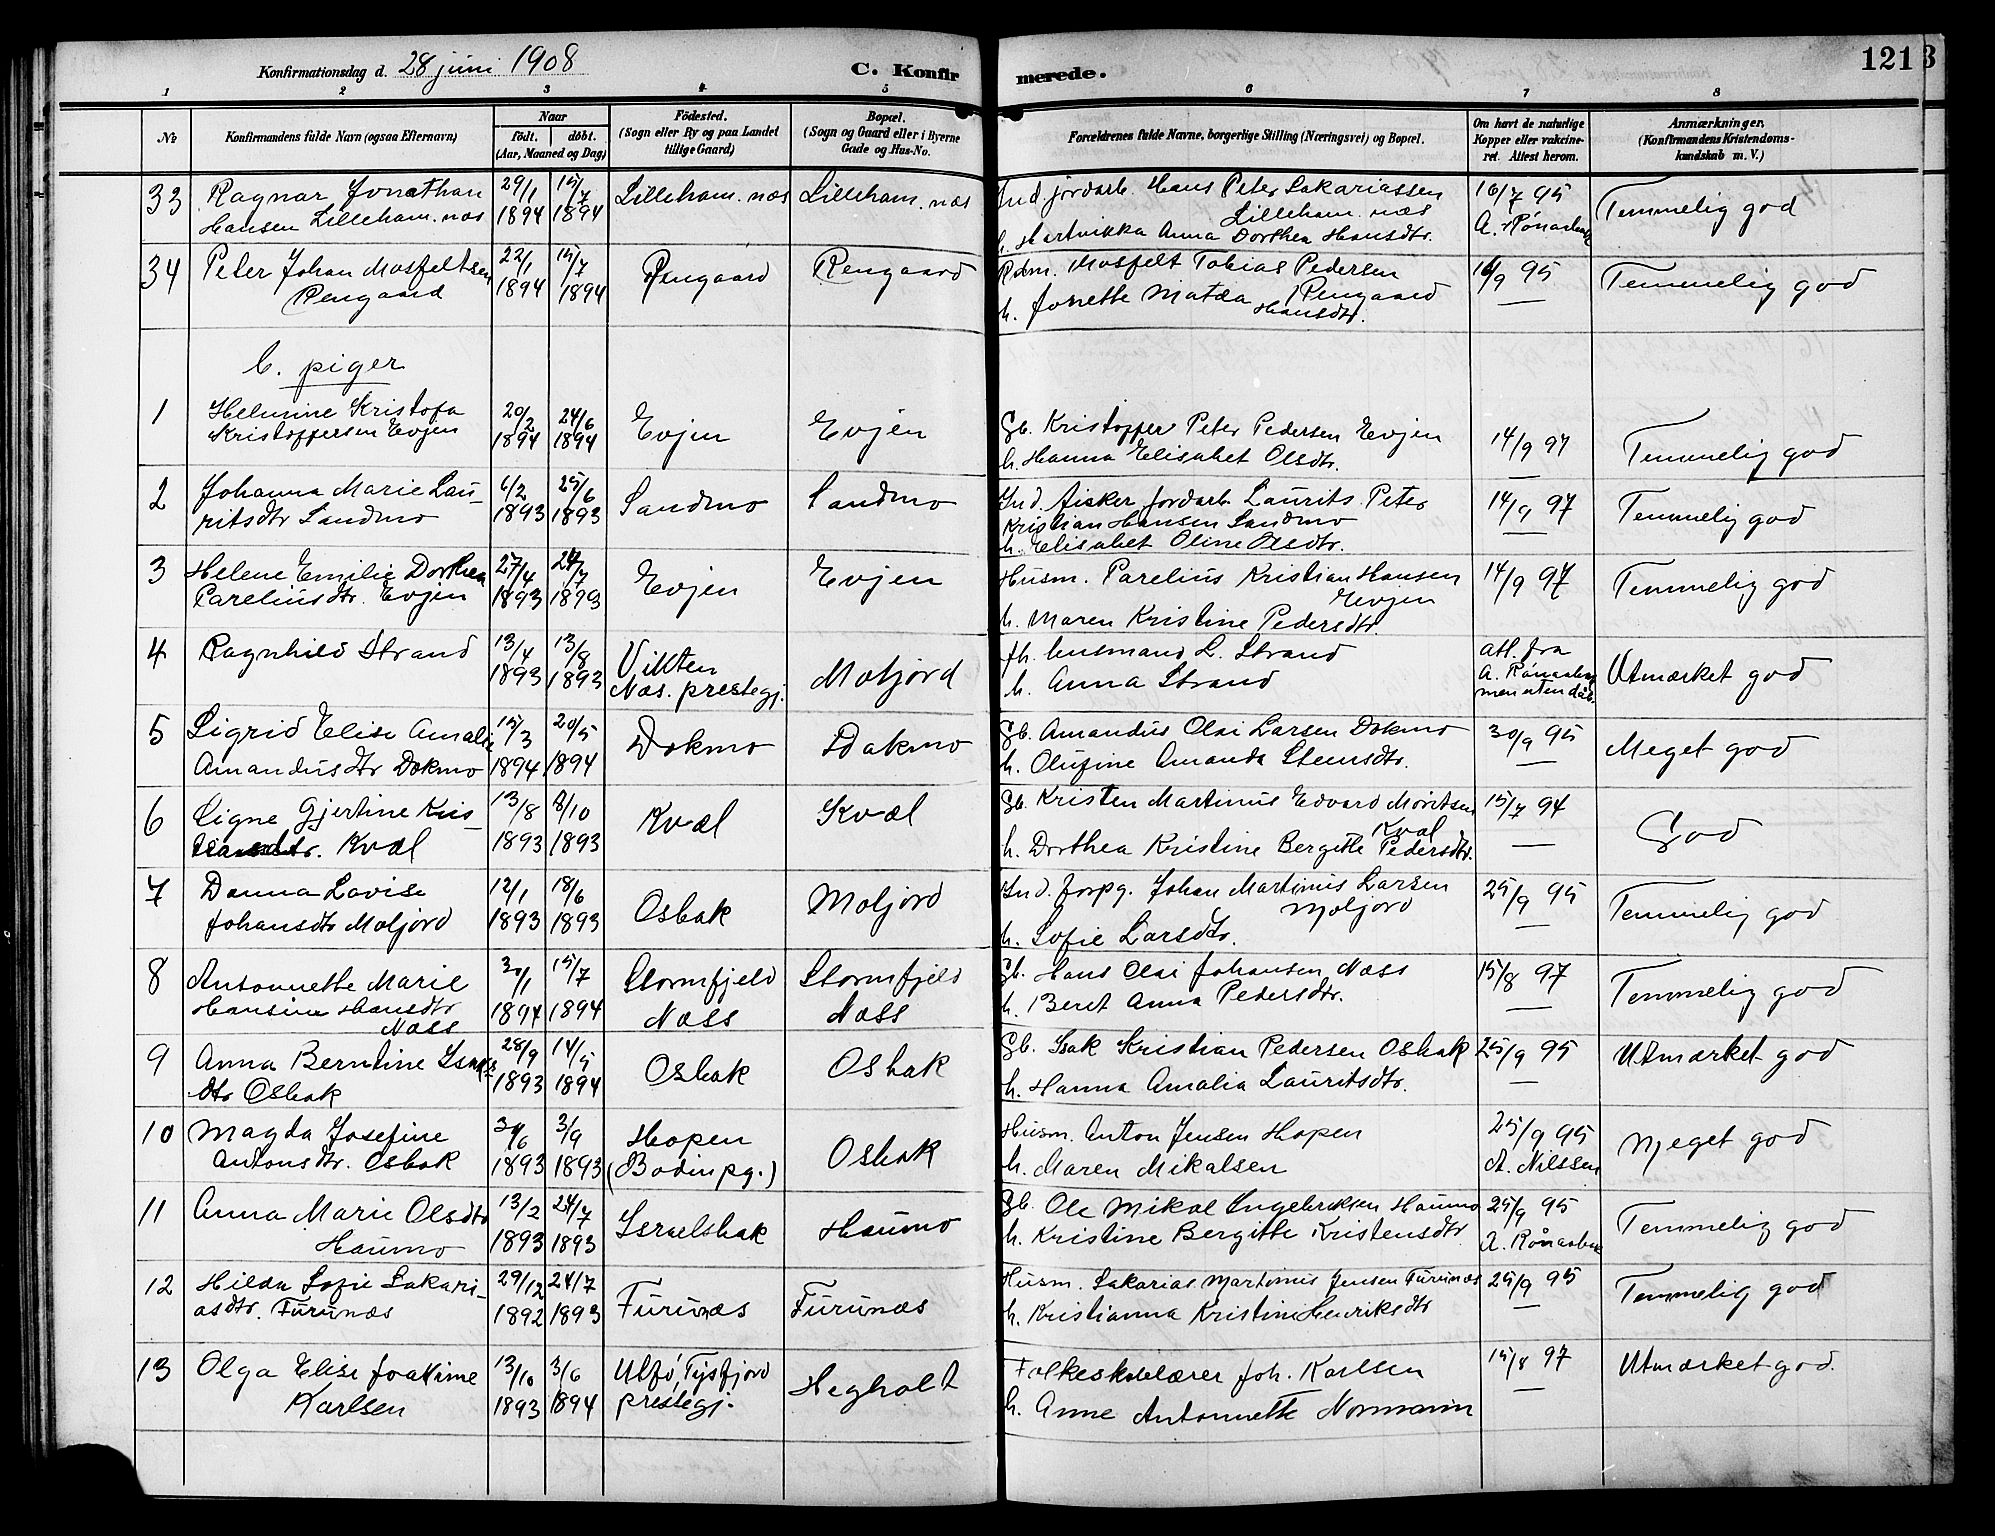 Konfirmationsdag d. 28 juni 1908
C. Konfirmerede.
121
3
1 2 3 4 5 6 7 8
No
Konfirmandens fulde Navn (ogsaa Efternavn)
Naar
födt. döbt.
(Aar, Maaned og Dag)
Födested.
(Sogn eller By og paa Landet
tillige Gaard)
Bopæl.
(Sogn og Gaard eller i Byerne
Gade og Hus-No.
Forældrenes fulde Navne, borgerlige Stilling (Næringsvei) og Bopæl.
Om havt de naturlige
Kopper eller vakcine-
ret. Attest herom.
Anmærkninger.
(Konfirmandens Kristendoms-
kundskab m. V.)
33 Ragnar Jonathan 29/1 15/7 Lilleham. næs Lilleham. næs Ind. jordarb. Hans Peter Sakariassen 16/7 95 Temmelig god
Hansen Lilleham. næs 1894 1894 Lilleham. næs A. Rønaabek
h. Hartvikka Anna Dorthea Hansdtr.
34 Peter Johan Mosfeltsen 22/1 15/7 Rengaard Rengaard Rdm. Mosfelt Tobias Pedersen 16/9 95 Temmelig god
Rengaard 1894 1894 h. Jonette Matea Rengaard —
Hansdtr.
b. piger
1 Helmine Kristofa 20/2 24/6 Evjen Evjen Gb. Kristoffer Peter Pedersen Evjen 14/9 97 Temmelig god
Kristoffersen Evjen 1894 1894 h. Hanna Elisabet Olsdtr. —
2 Johanna Marie Lau- 6/2 25/6 Sandmo Sandmo Ind. fisker, jordarb. Laurits Peter 14/9 97 Temmelig god
ritsdtr Sandmo 1893 1893 Kristian Hansen Sandmo —
h. Elisabet Oline Olsdtr.
3 Helene Emilie Dorthea 27/4 24/7 Evjen Evjen Husm. Parelius Kristian Hansen 14/9 97 Temmelig god
Pareliusdtr. Evjen 1893 1893 Evjen
h. Maren Kristine Pedersdtr.
4 Ragnhild Strand 13/4 13/8 Vikten Moljord fh. Ausmand L. Strand att. fra Utmærket god
1893 1893 Næs. prestegj. h. Anna Strand A. Rønaabek
men uten dat.
5 Sigrid Elise Amalie 15/3 20/5 Dokmo Dokmo Gb. Amandus Olai Larsen Dokmo 30/9 95 Meget god
Amandusdtr Dokmo 1894 1894 h. Olufine Amanda Stensdtr. —
6 Signe Gjertine Kris- 13/8 8/10 Kvæl Kvæl Gb. Kristen Martinus Edvard Moritsen 15/7 94 God
tiansdtr. Kvæl 1893 1893 Kvæl —
h. Dorthea Kristine Bergitte Pedersdtr.
7 Danna Lovise 12/1 18/6 Osbak Moljord Ind. forpg. Johan Martinus Larsen 25/9 95 Temmelig god
Johansdtr Moljord 1893 1893 Moljord —
h. Sofie Larsdtr.
8 Antonnette Marie 30/1 15/7 Stormfjeld Stormfjeld Gb. Hans Olai Johansen Næss 15/8 97 Temmelig god
Hansine Hansdtr 1894 1894 Næss Næss h. Beret Anna Pedersdtr. —
Næss
9 Anna Berntine Isaks- 28/9 14/5 Osbak Osbak Gb. Isak Kristian Pedersen Osbak 25/9 95 Utmærket god
dtr Osbak 1893 1894 h. Hanna Amalia Lauritsdtr. —
10 Magda Josefine 30/6 3/9 Hopen Osbak Husm. Anton Jensen Hopen 25/9 95 Meget god
Antonsdtr. Osbak 1893 1893 (Bodin pg.) h. Maren Mikalsen A. Nilssen
11 Anna Marie Olsdtr 13/2 24/7 Israelsbak Haumo Gb. Ole Mikal Ingebriktsen Haumo 25/9 95 Temmelig god
Haumo 1893 1893 h. Kristine Bergitte Kristensdtr A. Rønaabek
12 Hilda Sofie Sakari- 29/12 24/7 Furunæs Furunæs Husm. Sakarias Martinus Jensen Furunæs 25/9 95 Temmelig god
asdtr. Furunæs 1892 1893 h. Kristianna Kristine Henriksdtr —
13 Olga Elise Joakime 13/10 3/6 Ulfö, Tysfjord Hegholt Folkeskolelærer Joh. Karlsen 15/8 97 Utmærket god.
Karlsen 1893 1894 prestegj. h. Anne Antonnette Normann —